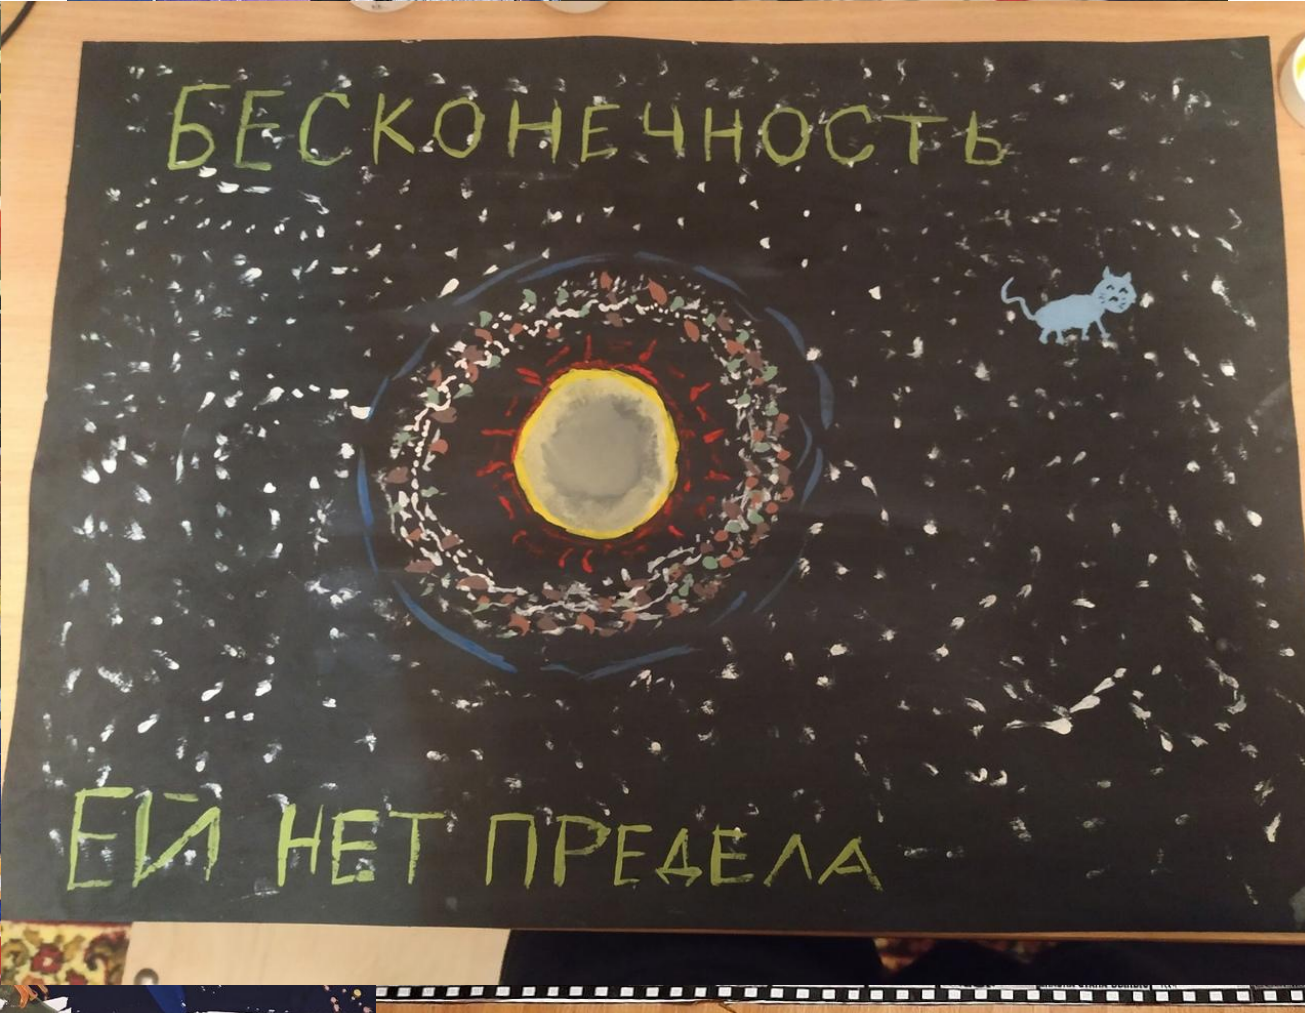 БЕСКОНЕЧНОСТЬ
ЕЙ НЕТ ПРЕДЕЛА